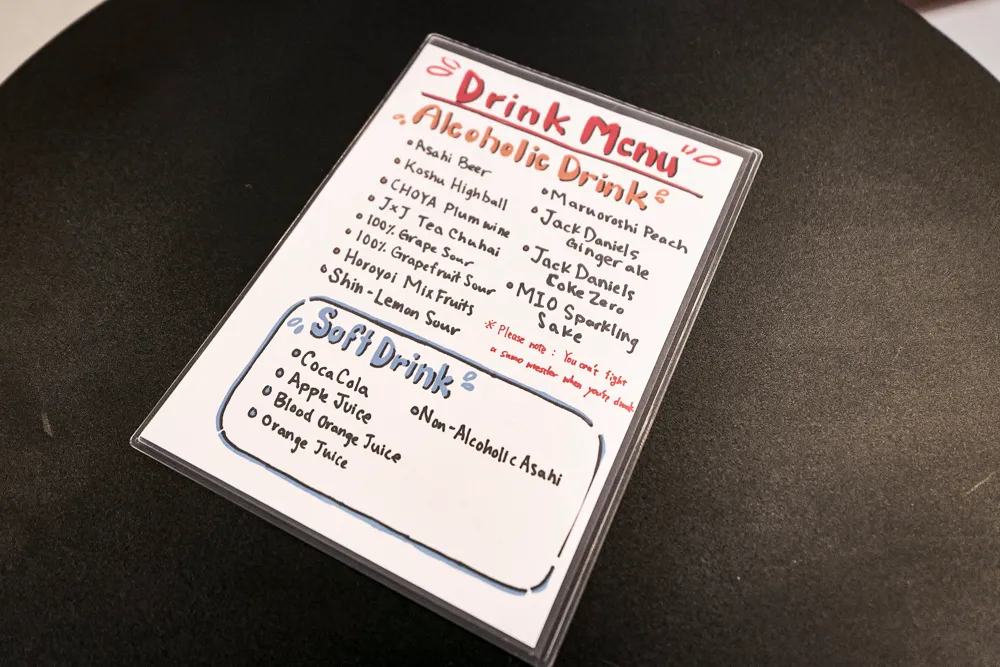 Drink Menu
Alcoholic Drink
• Asahi Beer
• Koshu Highball
• CHOYA Plum wine
• JxJ Tea Chuhai
• 100% Grape Sour
• 100% Grapefruit Sour
• Horoyoi Mix Fruits
• Shin-Lemon Sour
• Maruoroshi Peach
• Jack Daniels
Ginger ale
• Jack Daniels
Coke Zero
• MIO Sparkling
Sake
※ Please note : You can't fight
a sumo wrestler when you're drunk
Soft Drink
• Coca Cola
• Apple Juice
• Blood Orange Juice
• Orange Juice
• Non-Alcoholic Asahi